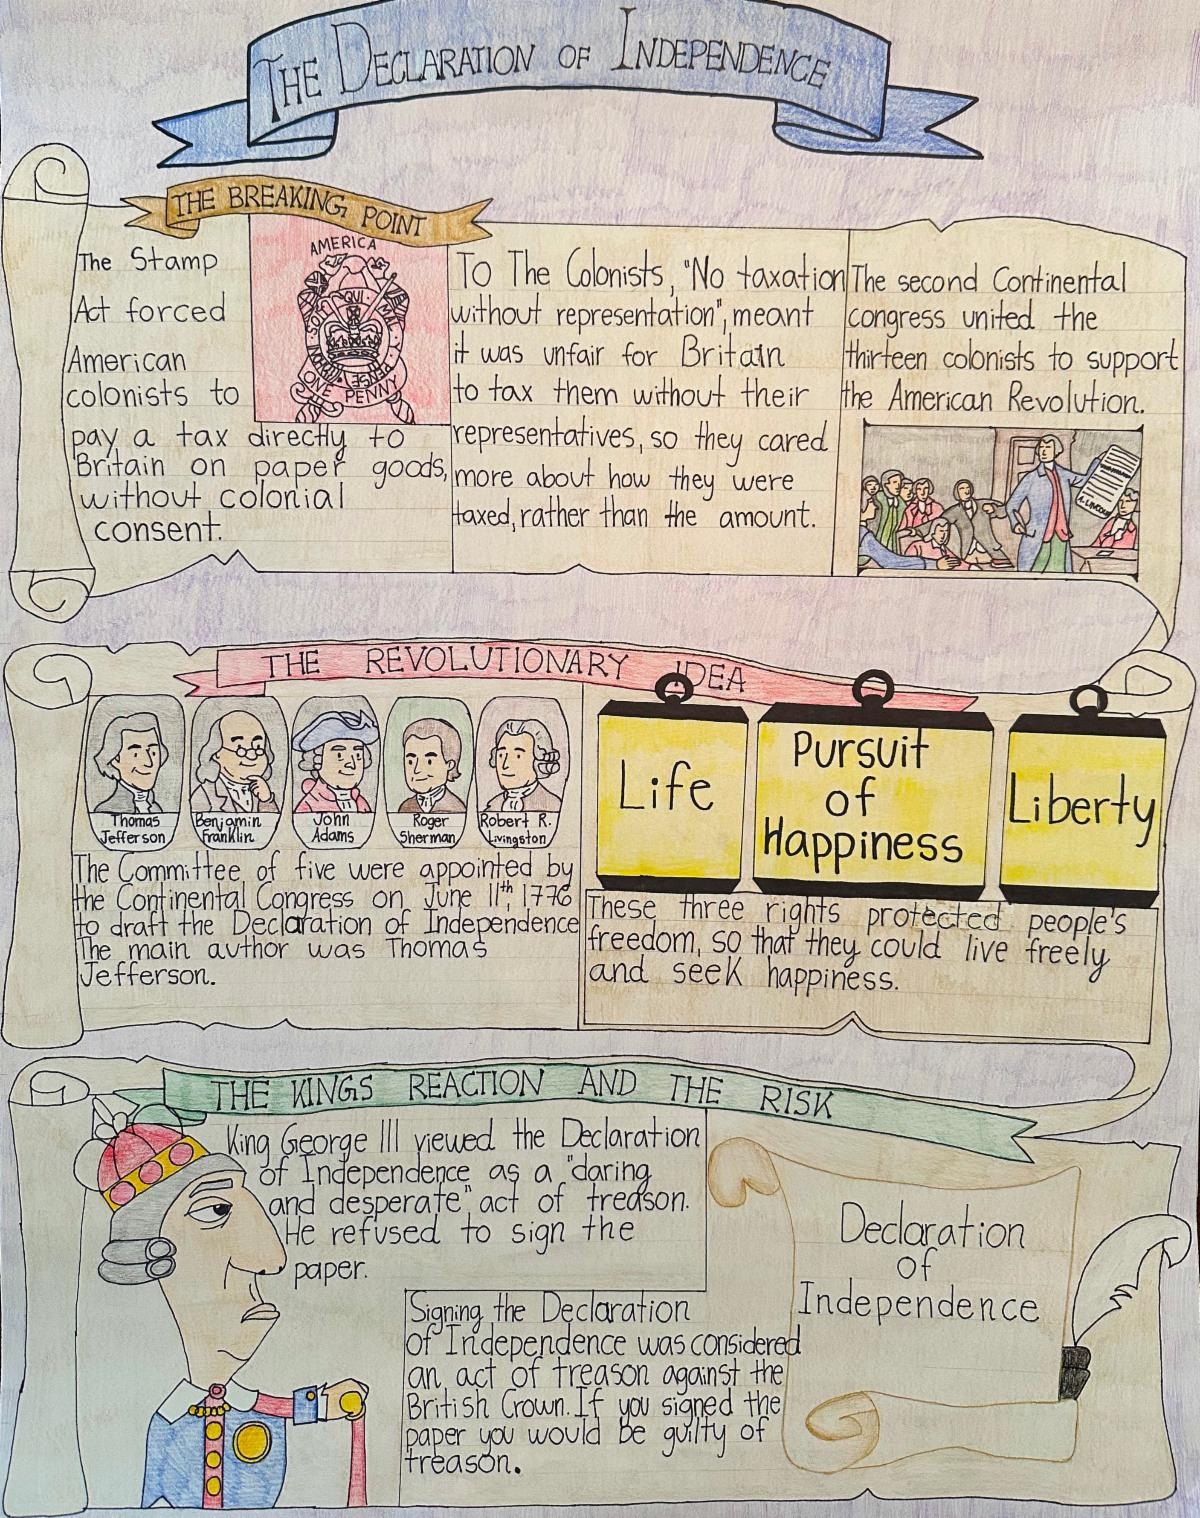 THE DECLARATION OF INDEPENDENCE
THE BREAKING POINT
The Stamp
Act forced
American
colonists to
pay a tax directly to
Britain on paper goods,
without colonial
consent.
AMERICA
SOIT
QUI
MAL
PENSE
HONI
ONE PENNY
To The Colonists, "No taxation
without representation", meant
it was unfair for Britain
to tax them without their
representatives, so they cared
more about how they were
taxed, rather than the amount.
The second Continental
congress united the
thirteen colonists to support
the American Revolution.
THE REVOLUTIONARY IDEA
Thomas
Jefferson
Benjamin
Franklin
John
Adams
Roger
Sherman
Robert R.
Livingston
The Committee of five were appointed by
the Continental Congress on June 11th, 1776
to draft the Declaration of Independence
The main author was Thomas
Jefferson.
Life
Pursuit
of
Happiness
Liberty
These three rights protected people's
freedom, so that they could live freely
and seek happiness.
THE KINGS REACTION AND THE RISK
King George III viewed the Declaration
of Independence as a "daring
and desperate" act of treason.
He refused to sign the
paper.
Signing the Declaration
of Independence was considered
an act of treason against the
British Crown. If you signed the
paper you would be guilty of
treason.
Declaration
of
Independence